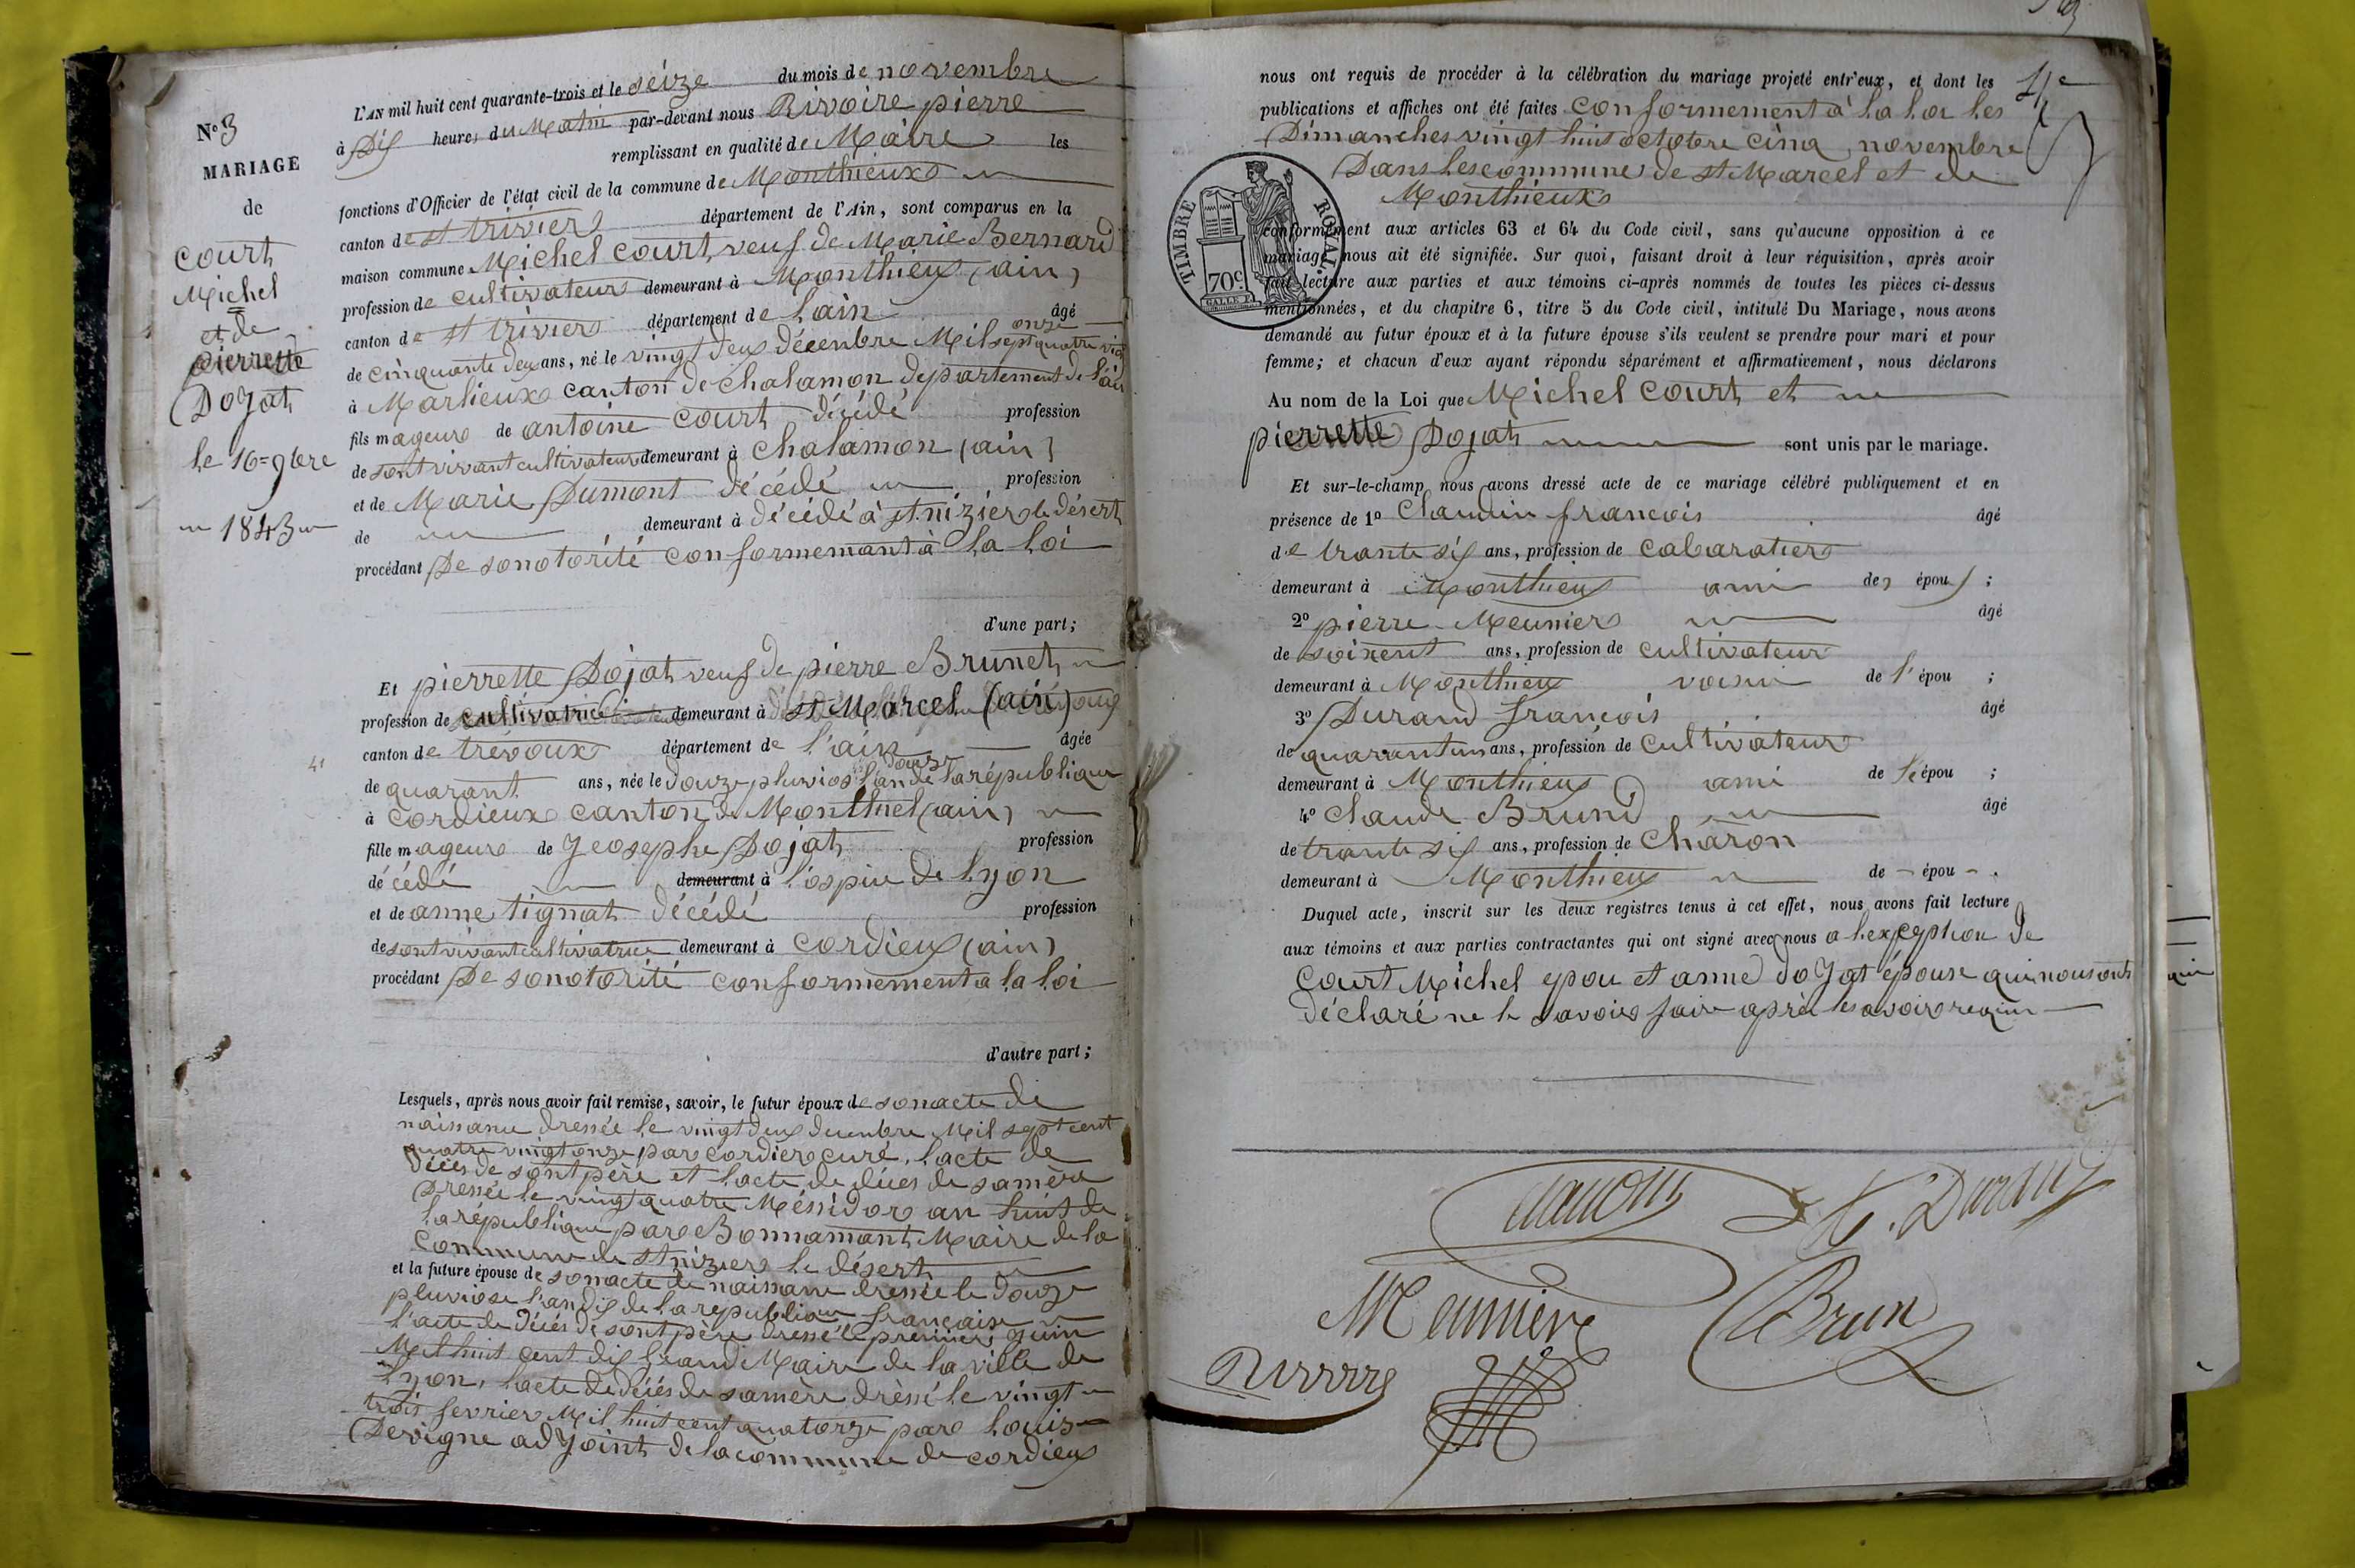 N° 3
MARIAGE
de
Court
Michel
et de
pierrette
Dojat
le 16 = 9bre
1843
L'AN mil huit cent quarante-trois et le séize du mois de novembre
à Dix heures du Matin par-devant nous Rivoire pierre
remplissant en qualité de Maire les
fonctions d'Officier de l'état civil de la commune de Monthieux
canton de st trivier département de l'Ain, sont comparus en la
maison commune Michel Court veuf de Marie Bernard
profession de cultivateur demeurant à Monthieux (ain)
canton de st trivier département de Lain âgé
onze
de cinquante deux ans, né le vingt deux décembre Mil sept quatre vin
à Marlieux canton de chalamon département de l'ain
fils mageur de antoine court décédé profession
de sont vivant cultivateur demeurant à Chalamon (ain)
et de Marie Dumont décédé profession
de demeurant à décédé à st. nizier le désert
procédant De sonotorité conformemant à la loi
d'une part;
Et pierrette Dojat veuf de pierre Brunet
profession de cultivatrice demeurant à st Marcel (ain)
canton de trévoux département de l'ain âgée
de quarant ans, née le douze pluvios l'an de la république
à cordieux canton de Monthuel (ain)
fille mageure de Jeosephe Dojat profession
décédé demeurant à l'ospice de Lyon
et de anne tignat décédé profession
de sont vivant cultivatrice demeurant à Cordieux (ain)
procédant De sonotorité conformement a la loi
d'autre part;
Lesquels, après nous avoir fait remise, savoir, le futur époux de son acte de
naissance dressée le vingt deux decembre Mil sept cent
quatre vingt onze par cordier curé, l'acte de
décès de sont père et l'acte de décès de sa mère
Dressée le vingt quatre Méssidor an huit de
la république par Bonnamant Maire de la
Commune de st nizier le désert
et la future épouse de son acte de naissance dressée le douze
pluviose l'an dix de la republique française
l'acte de décès de sont père dressé le premier juin
Mil huit cent dix Maire de la ville de
Lyon, l'acte de décès de sa mère drèssé le vingt
trois fevrier Mil huit cent quatorze par Louis
Devigne adjoint de la commune de cordieux
nous ont requis de procéder à la célébration du mariage projeté entr'eux, et dont les
publications et affiches ont été faites conformement à la loi les
Dimanches vingt huit octobre cinq novembre
Dans les commune de st Marcel et de
Monthieux
TIMBRE ROYAL
70 c
conformément aux articles 63 et 64 du Code civil, sans qu'aucune opposition à ce
mariage nous ait été signifiée. Sur quoi, faisant droit à leur réquisition, après avoir
fait lecture aux parties et aux témoins ci-après nommés de toutes les pièces ci-dessus
mentionnées, et du chapitre 6, titre 5 du Code civil, intitulé Du Mariage, nous avons
demandé au futur époux et à la future épouse s'ils veulent se prendre pour mari et pour
femme; et chacun d'eux ayant répondu séparément et affirmativement, nous déclarons
Au nom de la Loi que Michel Court et
pierrette Dojat sont unis par le mariage.
Et sur-le-champ nous avons dressé acte de ce mariage célébré publiquement et en
présence de 1° francois âgé
de trante six ans, profession de cabaratier
demeurant à Monthieux ami des époux;
2° pierre Meunier âgé
de soixent ans, profession de cultivateur
demeurant à Monthieux voisin de l'épou;
3° Durand françois âgé
de quarantun ans, profession de cultivateur
demeurant à Monthieux ami de l'épou;
4° Claude Brund âgé
de trante six ans, profession de Charon
demeurant à Monthieux de épou.
Duquel acte, inscrit sur les deux registres tenus à cet effet, nous avons fait lecture
aux témoins et aux parties contractantes qui ont signé avec nous a l'exception de
Court Michel epou et anne dojat épouse qui nous ont
déclaré ne le savoir fair après les avoir requis
Durand
Meunière
Brun